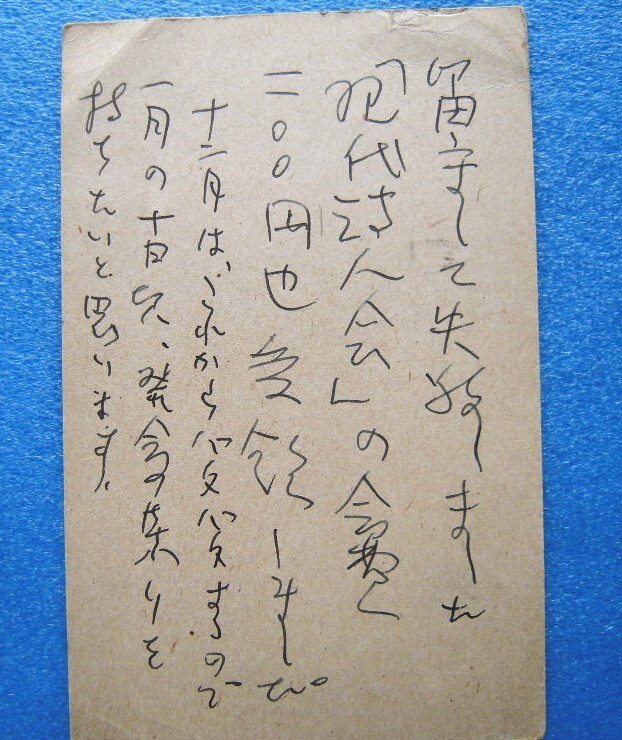 留守して失敬しました
「現代詩人会」の会費
二〇〇円也受領しました。
十二月は、これからバタバタするので
一月の十日頃、発会の集りを
持ちたいと思います。